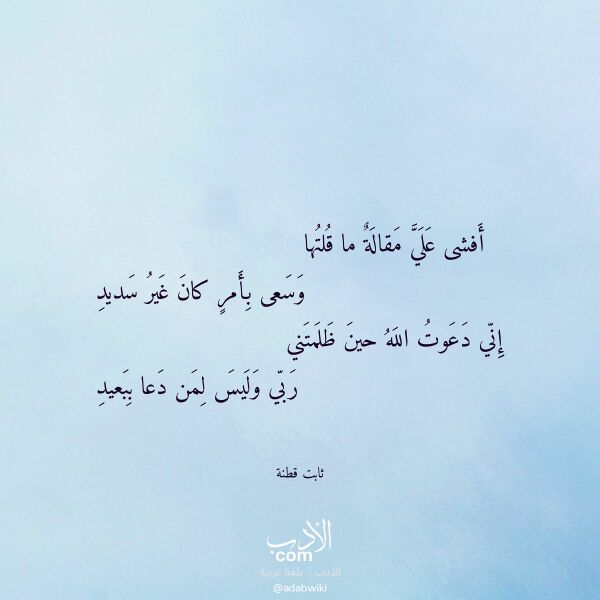 أَفشى عَلَيَّ مَقالَةٌ ما قُلتُها
وَسَعى بِأَمرٍ كانَ غَيرُ سَديدِ
إِنّي دَعَوتُ اللَهُ حينَ ظَلَمتَني
رَبّي وَلَيسَ لِمَن دَعا بِبَعيدِ
ثابت قطنة
الأدب
com
الأدب .. بلغة عربية
@adabwiki